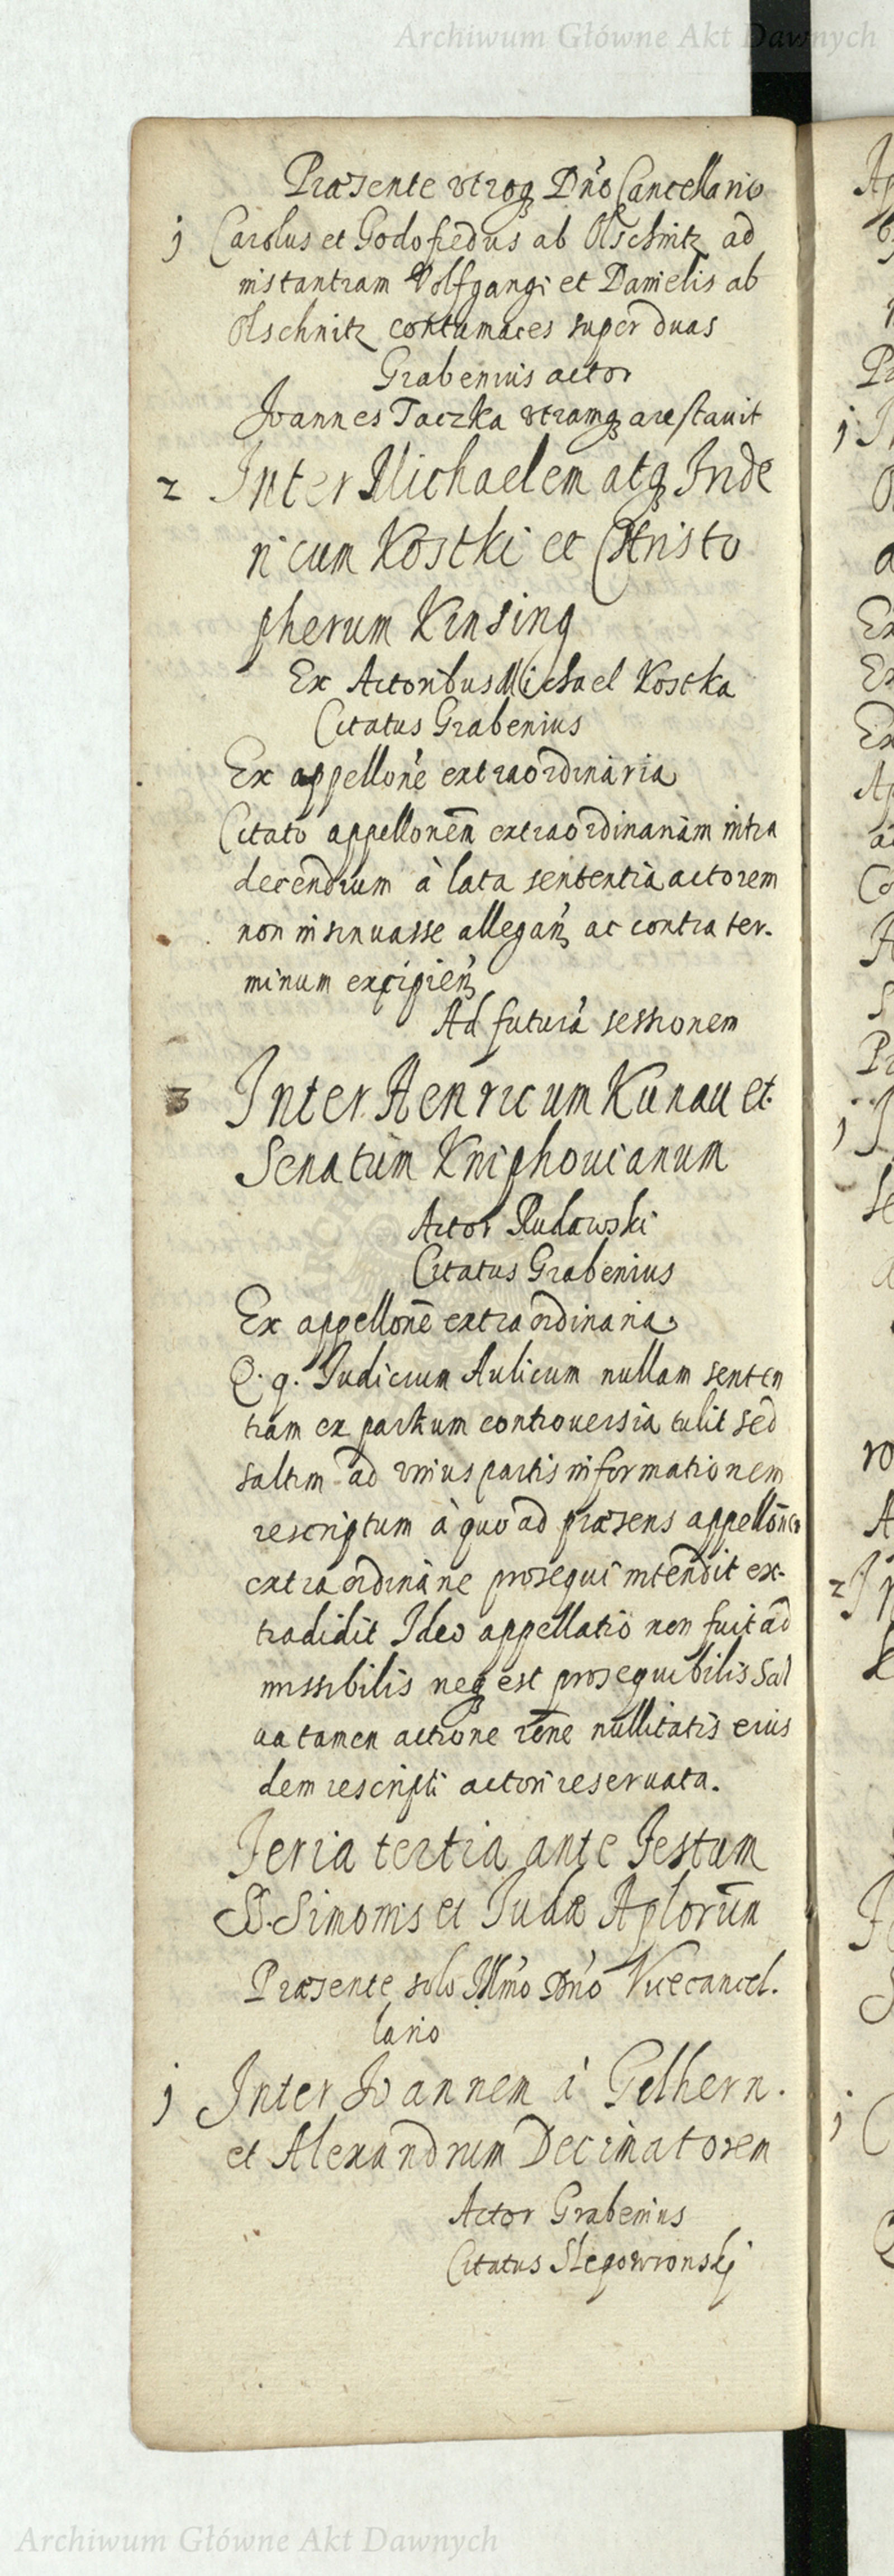 Archiwum Główne Akt Dawnych
Præsente vtroq; Dn̄o Cancellario
1 Carolus et Godofredus ab Olschnitz ad
instantiam Volfgangi et Danielis ab
Olschnitz contumaces super duas
Grabenius actor
Joannes Taczka vtramq; arestauit
2 Inter Michaelem atq; Fride
ricum Kostki et Christo
pherum Kinsing
Ex Actoribus Michael Kostka
Citatus Grabenius
Ex appellōne extraordinaria
Citato appellonēm extraordinariam intra
decendium à lata sententia actorem
non insinuasse allegan̄ ac contra ter-
minum excipien̄
Ad futurā sessionem
3 Inter Henricum Kunau et
Senatum Kniphouianum
Actor Rudawski
Citatus Grabenius
Ex appellonē extraordinaria
Q. q. Judicium Aulicum nullam senten
tiam ex partium controuersia tulit sed
saltim ad vnius partis informationem
rescriptum à quo ad præsens appellōnem
extraordinarie prosequi intendit ex-
tradidit Ideo appellatio non fuit ad
missibilis neq; est prosequibilis Sal
ua tamen actione rōne nullitatis eius
dem rescripti actori reseruata.
Feria tertia ante Festum
SS. Simonis et Judæ Aplorūm
Præsente solo Illm̄o Dn̄o Vicecancel.
lario
1 Inter Joannem à Gelhern.
et Alexandrum Decimatorem
Actor Grabenius
Citatus Slepowronskj
Archiwum Główne Akt Dawnych